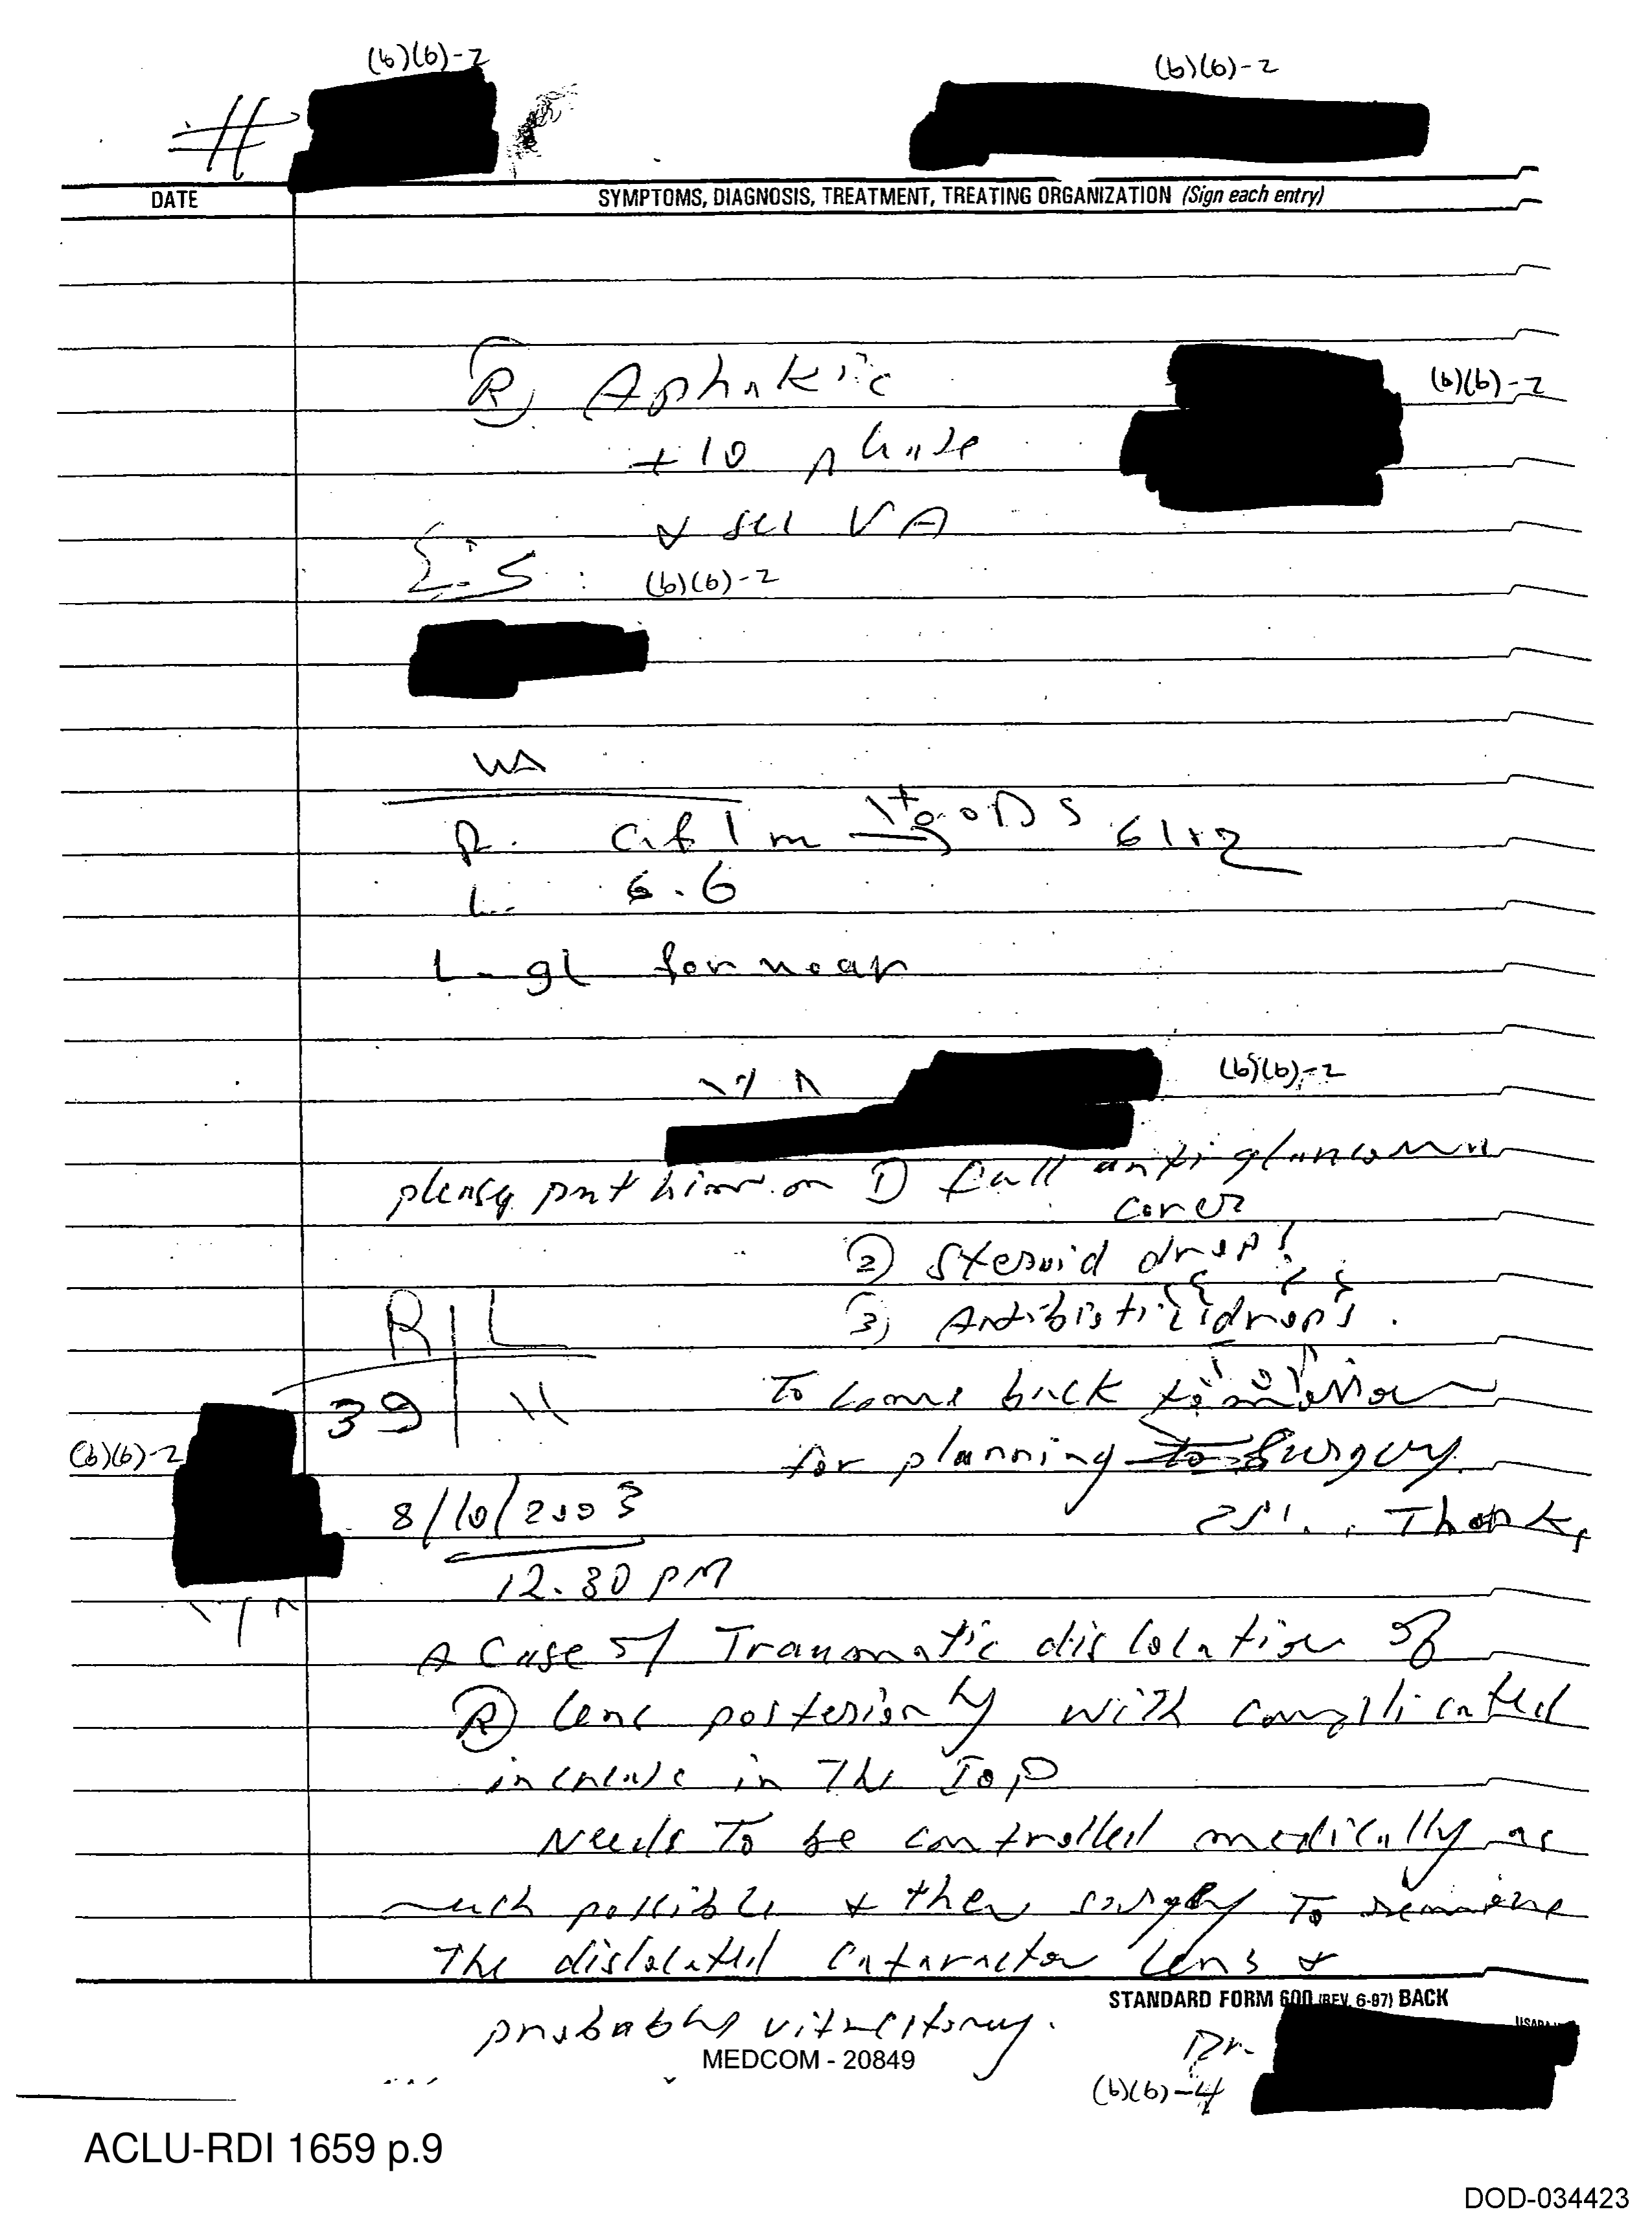 (b)(6)-2 (b)(6)-2
#
DATE SYMPTOMS, DIAGNOSIS, TREATMENT, TREATING ORGANIZATION (Sign each entry)
Ⓡ Aphakic
(b)(6)-2
+10
VA
(b)(6)-2
VA
R. C.f 1 m → +10.0 DS 6/12
L. 6.6
L- gl for near
(b)(6)-2
please put him on 1) full antiglaucoma
cover
② Steroid drops
③ Antibiotic drops.
R | L
39 | 11
To come back tomorrow
for planning to surgery
(b)(6)-2
8/10/2003
Thanks
12.30 PM
A Case of Traumatic dislocation of
Ⓡ lens posteriorly with complicated
increase in The IOP
Needs To be controlled medically as
much possible & then surgery To remove
The dislocated lens &
probably vitrectomy.
STANDARD FORM 600 (REV. 6-97) BACK
MEDCOM - 20849
Dr.
(b)(6)-4
ACLU-RDI 1659 p.9
DOD-034423